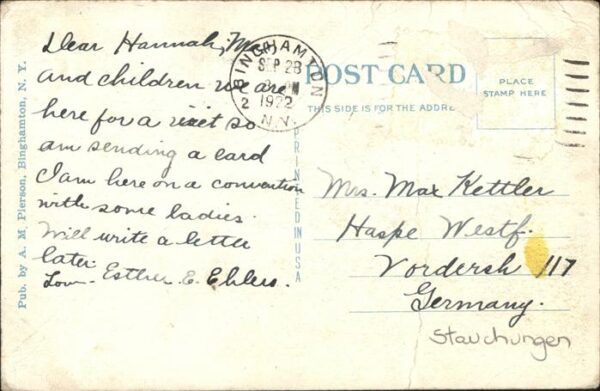 Dear Hannah, Max
and children we are
here for a visit so
am sending a card
I am here on a convention
with some ladies.
Will write a letter
later.
Love. Esther E. Ehlers.
BINGHAMTON
SEP 28
PM
1922
N.Y.
2
POST CARD
THIS SIDE IS FOR THE ADDRE
PLACE
STAMP HERE
PRINTED IN USA
Mrs. Max Kettler
Haspe Westf.
Vordersh 117
Germany.
Stauchungen
Pub. by A. M. Pierson, Binghamton, N. Y.